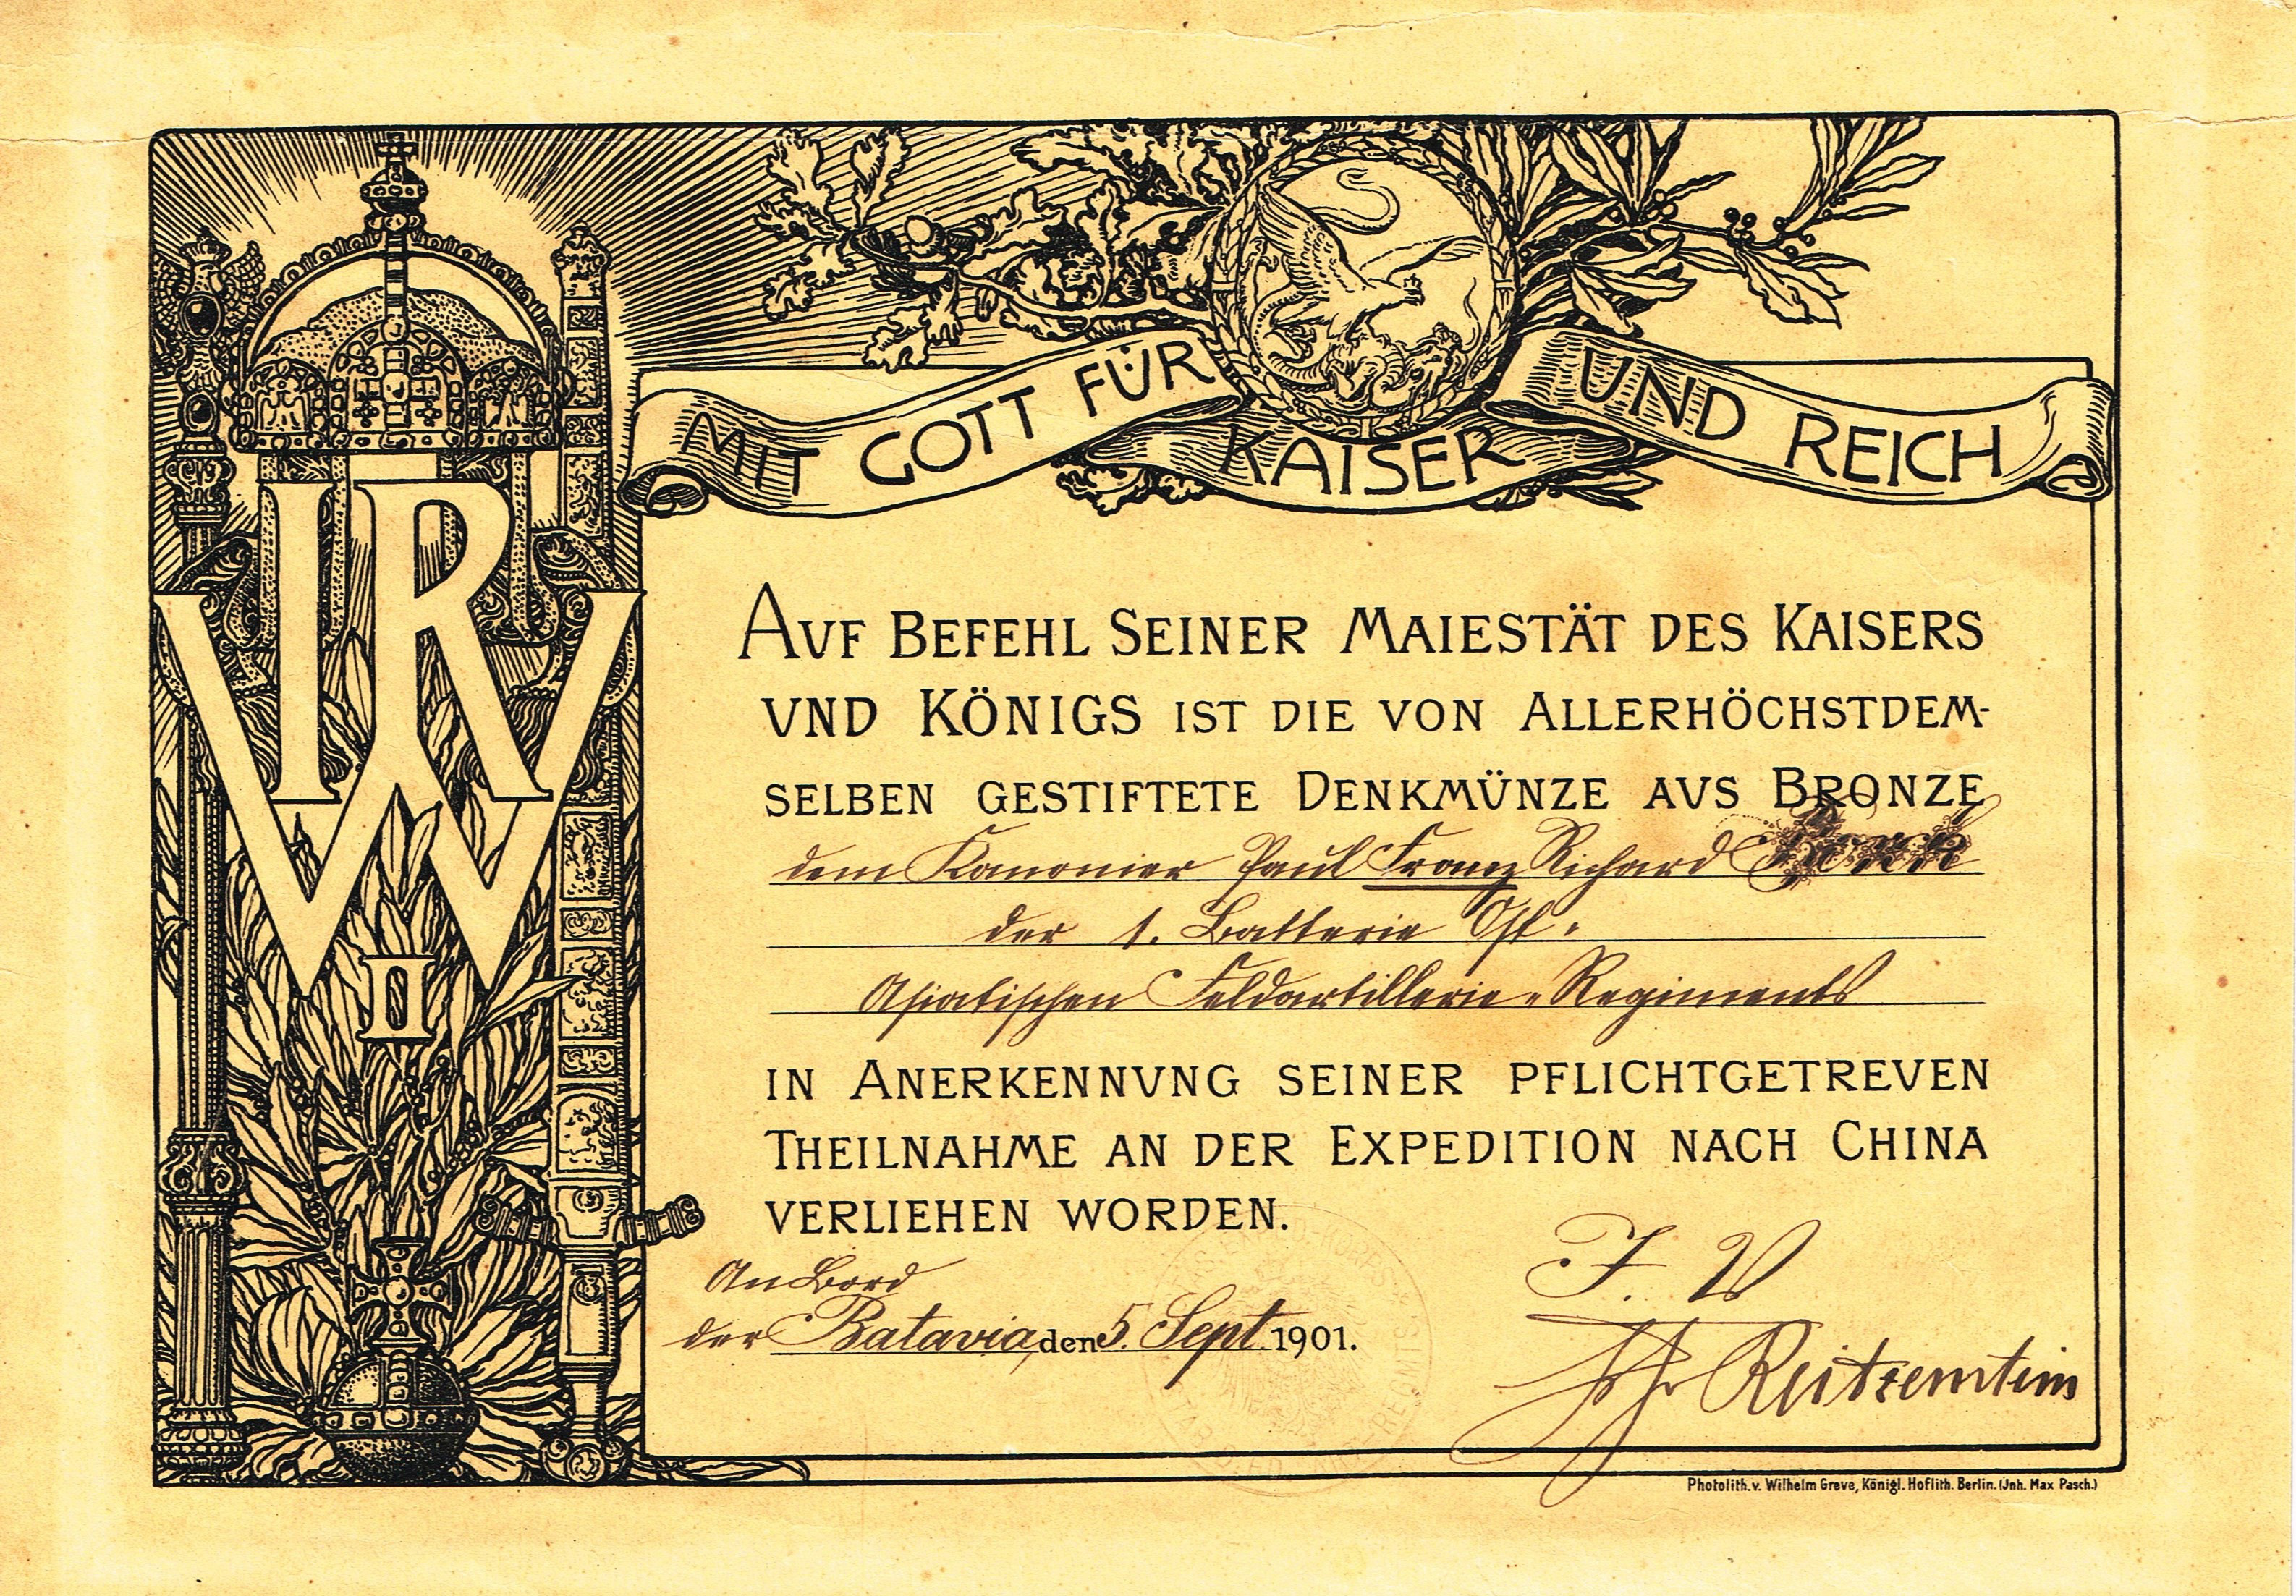 MIT GOTT FÜR KAISER UND REICH
IRW
II
AVF BEFEHL SEINER MAIESTÄT DES KAISERS
VND KÖNIGS IST DIE VON ALLERHÖCHSTDEM-
SELBEN GESTIFTETE DENKMÜNZE AVS BRONZE
dem Kanonier Paul Franz Richard
der 1. Batterie Ost-
Asiatischen Feldartillerie-Regiments
IN ANERKENNVNG SEINER PFLICHTGETREVEN
THEILNAHME AN DER EXPEDITION NACH CHINA
VERLIEHEN WORDEN.
An Bord
der Batavia, den 5. Sept. 1901.
J. V
Frhr Reitzenstein
Photolith. v. Wilhelm Greve, Königl. Hoflith. Berlin. (Jnh. Max Pasch.)